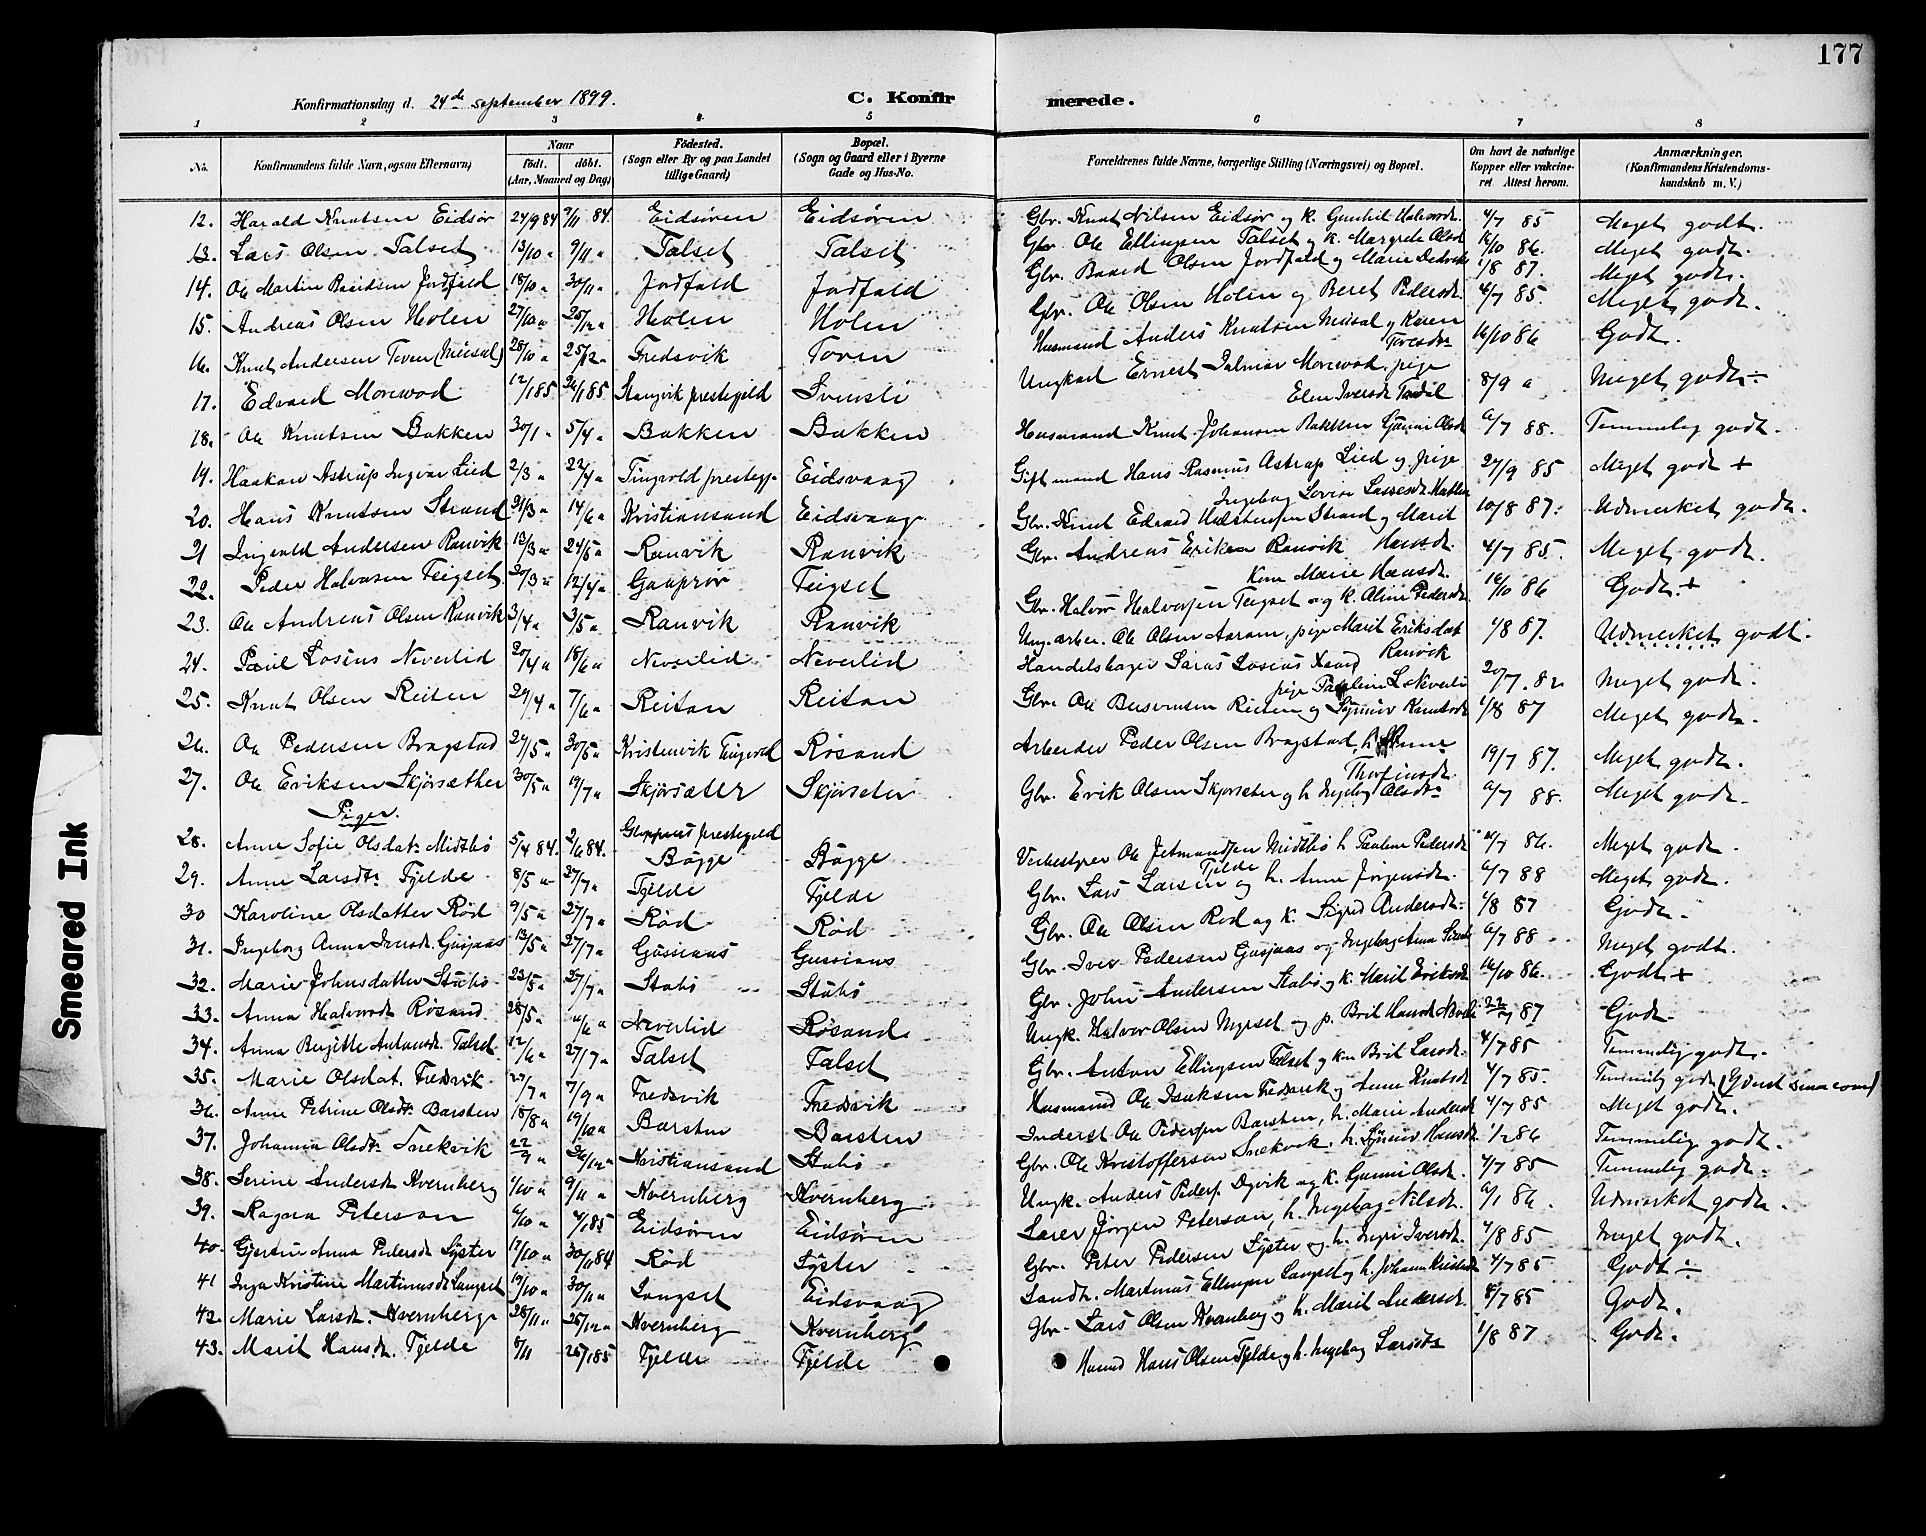 177
Konfirmationsdag d. 24de september 1899.
C. Konfirmerede.
1 2 3 4 5 6 7 8
No. Konfirmandens fulde Navn, ogsaa Efternavn) Naar födt. döbt. (Aar, Maaned og Dag) Födested. (Sogn eller By og paa Landet tillige Gaard) Bopæl. (Sogn og Gaard eller i Byerne Gade og Hus-No. Forældrenes fulde Navne, borgerlige Stilling (Næringsvei) og Bopæl. Om havt de naturlige Kopper eller vakcineret Attest herom. Anmærkninger. (Konfirmandens Kristendomskundskab m. V.)
12. Harald Knutsen Eidsör 24/9 84 9/11 84. Eidsören Eidsören Gbr. Knut Nilsen Eidsör og k. Gunhil Halvorsdt. 4/7 85 Meget godt.
13. Lars Olsen Talset 13/10 " 9/11 " Talset Talset Gbr. Ole Ellingsen Talset og k. Margrete Olsdt 16/10 86. Meget godt.
14. Ole Martin Baardsen Jordfald 18/10 " 30/11 " Jordfald Jordfald Gbr. Baard Olsen Jordfald og Marie 1/8 87. Meget godt.
15. Andreas Olsen Holen 27/10 " 25/12 " Holen Holen Gbr. Ole Olsen Holen og Beret Pedersdt. 4/7 85. Meget godt.
16. Knut Andersen Toven (Meisal) 28/10 " 25/12 " Fredsvik Toven Husmand Anders Knutsen Meisal og Karen Toresdtr 16/10 86 Godt.
17. Edvard Morewod 12/1 85 26/1 85 Stangvik prestegjeld Svensli Ungkarl Ernest Dalmar Morewod, pige Elen Iversdt Tordal 8/9 " Meget godt ÷
18. Ole Knutsen Bakken 30/1 " 5/4 " Bakken Bakken Husmand Knut Johansen Bakken Gjönni Olsdt 6/7 88. Temmelig godt.
19. Haakon Astrup Ingvar Lied 2/3 " 22/4 " Tingvold prestegj. Eidsvaag Gift mand Hans Rasmus Astrup Lied og pige Ingeborg Lovise Lassesdt. 27/9 85 Meget godt +
20. Hans Knutsen Strand 21/3 " 14/6 " Kristiansund Eidsvaag Gbr. Knut Edvard Halstensen Strand og Marit Hansdt. 10/8 87. Udmerket godt.
21 Ingvald Andersen Ranvik 13/3 " 24/5 " Ranvik Ranvik Gbr. Andreas Eriksen Ranvik Kone Marie Hansdt. 4/7 85. Meget godt.
22. Peder Halvorsen Teigset 20/3 " 12/4 " Gaupror Teigset Gbr. Halvor Halvorsen Teigset og k. Aline Pedersdt. 16/10 86 Godt. +
23. Ole Andreas Olsen Ranvik 3/4 " 3/5 " Ranvik Ranvik Ung. arber. Ole Olsen Aaram, pige Marit Eriksdat Ranvik 1/8 87. Udmerket godt.
24. Paul Losius Neverlid 20/4 " 18/6 " Neverlid Neverlid Handelsbager Laras Losius pige Pauline L. Neverli 20/7 . 82 Meget godt.
25. Knut Olsen Reiten 29/4 " 7/6 " Reitan Reitan Gbr. Ole Reiten og Synnöv Knutsdt 1/8 87 Meget godt.
26. Ole Pedersen Bragstad 29/5 " 30/5 " Kristenvik Tingvold Rösand Arbeider Peder Olsen Bragstad, h. Anne Thorfinsdt. 19/7 87. Meget godt.
27. Ole Eriksen Skjörsæther 30/5 " 19/7 " Skjörsæter Skjörseter Gbr. Erik Olsen Skjorseter og h. Ingeborg Olsdtr 6/7 88. Meget godt.
Piger.
28. Anne Sofie Olsdatr Midtbö 5/4 84. 2/6 84. Gloppens prestegjeld Bögge Bögge Verkestyrer Ole Jetmundsen Midtbö h. Pauline Pedersdt 21/7 86. Meget godt.
29. Anne Larsdtr Fjelde 8/5 " 27/7 " Fjelde Fjelde Gbr. Lars Larsen Fjelde og h. Anne Jörgensdt. 6/7 88 Meget godt.
30 Karoline Olsdatter Röd 9/5 " 27/7 " Röd Röd Gbr. Ole Olsen Röd og k. Sigrid Andersdt. 1/8 87 Godt.
31. Ingeborg Anna Iversdt. Gusjaas 13/5 " 27/7 " Gussiaas Gussiaas Gbr. Iver Pedersen Gusjaas og Ingeborg Anna 6/7 88 Meget godt.
32. Marie Johnsdatter Stubö 23/5 " 27/7 " Stubö Stubö Gbr. John Andersen Stubö og k. Marit Eriksdt 16/10 86. Godt +
33. Anna Halvorsdt Rösand 28/5 " /6 " Neverlid Rösand Ungk. Halvor Olsen Myrset og p. Brit Hansdt Neverli 22/7 87 Godt
34. Anna Birgitte Antonsdt. Talset 12/6 " 27/7 " Talset Talset Gbr. Anton Ellingsen Talset og kone Brit Larsdt. 4/7 85 Temmelig godt.
35. Marie Olsdat. Fredsvik 27/7 " 7/9 " Fredsvik Fredsvik Husmand Ole Isaksen Fredsvik og Anne Knutsdt 4/7 85. Temmelig godt
36. Anne Petrine Olsdtr Barsten 18/8 " 19/10 " Barsten Barsten Inderst Ole Pedersen Barsten, h. Marie Andersdt 4/7 85 Meget godt.
37. Johanna Olsdtr Snekvik 22/9 " 26/12 " Kristiansund Stubö Gbr. Ole Kristoffersen Snekvik h. Synnöv Hansdt. 1/2 86 Temmelig godt.
38. Serine Andersdt Kvernberg 4/10 " 9/11 " Kvernberg Kvernberg Ungk. Anders Peders. Dyvik og k. Gunni Olsdt. 4/7 85 Temmelig godt.
39. Ragna Peterson 6/10 " 4/1 85 Eidsören Eidsören Lærer Jörgen Peterson, h. Ingeborg Nilsdt. 6/1 86. Udmerket godt.
40. Gjertru Anna Pedersdt Syster 17/10 " 30/11 84 Röd Syster Gbr. Peter Pedersen Syster og h. Ingri Iversdt. 4/8 85 Meget godt.
41 Inga Kristine Martinusdt Langset 19/10 " 30/11 " Langset Eidsvaag Landh. Martinus Ellingsen Langset og h. Johanne 4/7 85 Godt ÷
42. Marie Larsdt. Kvernberg 28/11 " 26/12 " Kvernberg Kvernberg Gbr. Lars Olsen Kvernberg og h. Marit Andersdt. 8/7 85 Godt.
43. Marit Hansdt. Fjelde 8/11 26/1 85 Fjelde Fjelde Husmd Hans Olsen Fjelde og h. Ingeborg Larsdtr 1/8 87 Godt.
Smeared Ink